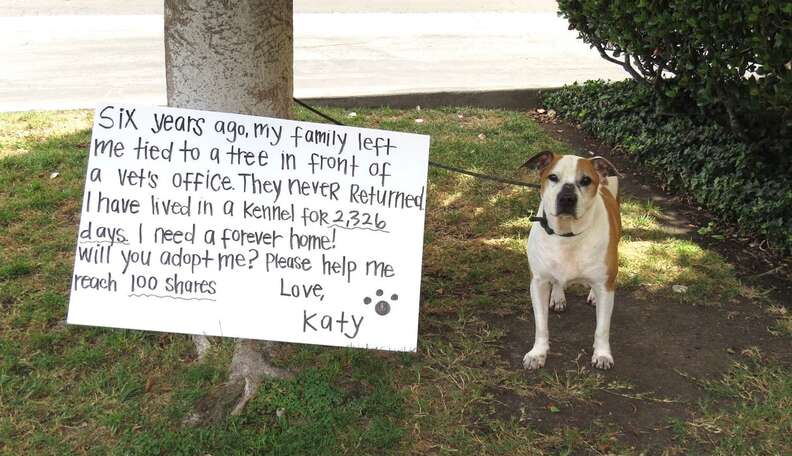 Six years ago, my family left
me tied to a tree in front of
a vet's office. They never Returned
I have lived in a kennel for 2,326
days. I need a forever home!
will you adopt me? Please help me
reach 100 shares
Love,
Katy